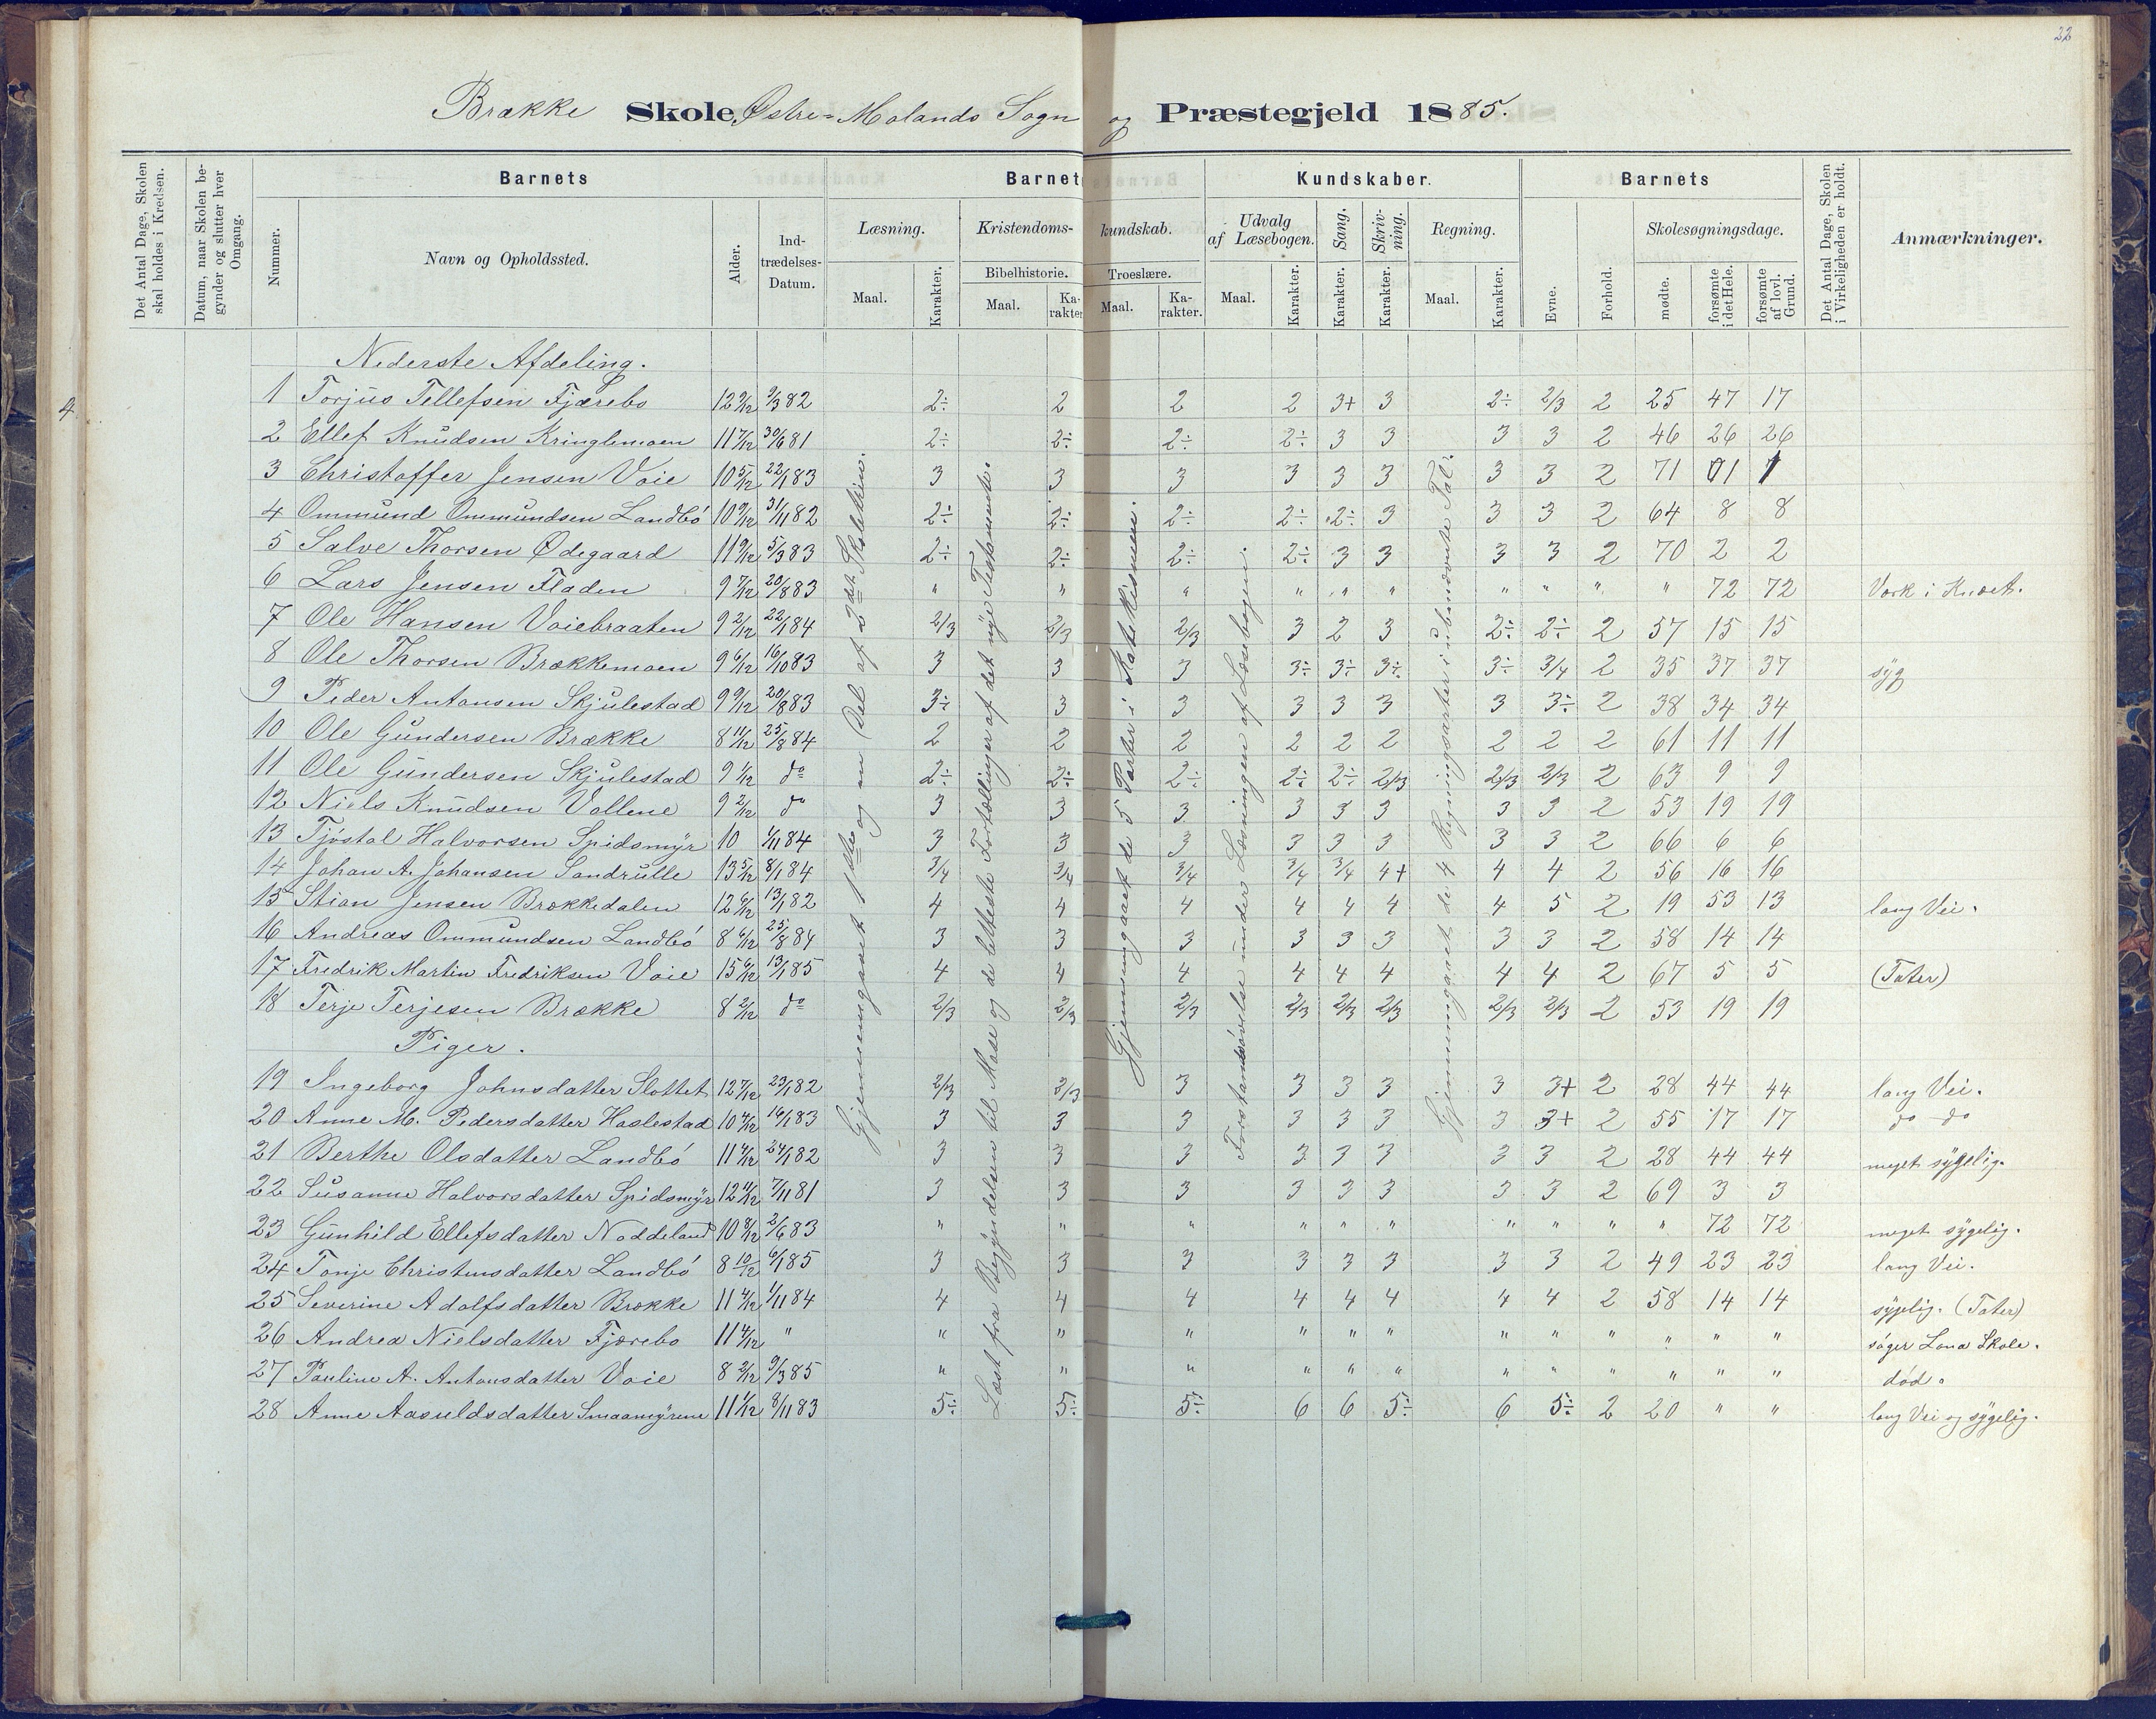 22
Brække Skole, Østre-Molands Sogn og Præstegjeld 1885.
Det Antal Dage, Skolen skal holdes i Kredsen.
Datum, naar Skolen begynder og slutter hver Omgang.
Barnets
Nummer.
Navn og Opholdssted.
Alder.
Indtrædelses-Datum.
Barnets Kundskaber.
Læsning.
Maal.
Karakter.
Kristendomskundskab.
Bibelhistorie.
Maal.
Karakter.
Troeslære.
Maal.
Karakter.
Udvalg af Læsebogen.
Maal.
Karakter.
Sang.
Karakter.
Skrivning.
Karakter.
Regning.
Maal.
Karakter.
Barnets
Evne.
Forhold.
Skolesøgningsdage.
mødte.
forsømte i det Hele.
forsømte af lovl. Grund.
Det Antal Dage, Skolen i Virkeligheden er holdt.
Anmærkninger.
4
Nederste Afdeling.
1 Torjus Tellefsen Fjærebo 12 9/12 9/3 82 2÷ 2 2 2 3+ 3 2÷ 2/3 2 25 47 17
2 Ellef Knudsen Kringlemoen 11 7/12 30/6 81 2÷ 2÷ 2÷ 2÷ 3 3 3 3 2 46 26 26
3 Christoffer Jensen Voie 10 5/12 22/1 83 3 3 3 3 3 3 3 3 2 71 1 1
4 Ommund Ommundsen Landbö 10 9/12 31/11 82 2÷ 2÷ 2÷ 2÷ 2÷ 3 3 3 2 64 8 8
5 Salve Thorsen Ødegaard 11 9/12 5/3 83 2÷ 2÷ 2÷ 2÷ 3 3 3 3 2 70 2 2
6 Lars Jensen Fladen 9 7/12 20/8 83 " " " " " " " " " " 72 72 Værk i Knæet.
7 Ole Hansen Voiebraaten 9 2/12 22/1 84 2/3 2/3 2/3 3 2 3 2÷ 2÷ 2 57 15 15
8 Ole Thorsen Brækkemoen 9 6/12 16/10 83 3 3 3 3÷ 3÷ 3÷ 3÷ 3/4 2 35 37 37 syg
9 Peder Antonsen Skjulestad 9 9/12 20/8 83 3÷ 3 3 3 3 3 3 3÷ 2 38 34 34
10 Ole Gundersen Brække 8 11/12 25/8 84 2 2 2 2 2 2 2 2 2 61 11 11
11 Ole Gundersen Skjulestad 9 1/12 do 2÷ 2÷ 2÷ 2÷ 2÷ 2/3 2/3 2/3 2 63 9 9
12 Niels Knudsen Vollene 9 2/12 do 3 3 3 3 3 3 3 3 2 53 19 19
13 Tjöstal Halvorsen Spidsmyr 10 4/11 84 3 3 3 3 3 3 3 3 2 66 6 6
14 Johan A. Johansen Sandrulle 13 5/12 8/1 84 3/4 3/4 3/4 3/4 3/4 4+ 4 4 2 56 16 16
15 Stian Jensen Brækkedalen 12 6/12 13/1 82 4 4 4 4 4 4 4 5 2 19 53 13 lang Vei.
16 Andreas Ommundsen Landbö 8 6/12 25/8 84 3 3 3 3 3 3 3 3 2 58 14 14
17 Fredrik Martin Fredriksen Voie 15 6/12 13/1 85 4 4 4 4 4 4 4 4 2 67 5 5 (Tater)
18 Terje Terjesen Brække 8 2/12 do 2/3 2/3 2/3 2/3 2/3 2/3 2/3 2/3 2 53 19 19
Piger.
19 Ingeborg Johnsdatter Slottet 12 7/12 23/1 82 2/3 2/3 3 3 3 3 3 3+ 2 28 44 44 lang Vei.
20 Anne M. Pedersdatter Haslestad 10 4/12 16/1 83 3 3 3 3 3 3 3 3+ 2 55 17 17 do do
21 Berthe Olsdatter Landbö 11 4/12 24/1 82 3 3 3 3 3 3 3 3 2 28 44 44 meget sygelig.
22 Susanne Halvorsdatter Spidsmyr 12 11/12 7/11 81 3 3 3 3 3 3 3 3 2 69 3 3
23 Gunhild Ellefsdatter Noddeland 10 8/12 2/6 83 " " " " " " " " " " 72 72 meget sygelig.
24 Tonje Christensdatter Landbö 8 10/12 6/1 85 3 3 3 3 3 3 3 3 2 49 23 23 lang Vei.
25 Severine Adolfsdatter Brække 11 4/12 1/11 84 4 4 4 4 4 4 4 4 2 58 14 14 sygelig. (Tater)
26 Andrea Nielsdatter Fjærebo 11 4/12 " " " " " " " " " " " " " søger Lona Skole.
27 Pauline A. Antonsdatter Voie 8 2/12 9/3 85 " " " " " " " " " " " " död.
28 Anne Aasuldsdatter Smaamyrene 11 1/12 8/11 83 5÷ 5÷ 5÷ 6 6 5÷ 6 5÷ 2 20 " " lang Vei og sygelig.
Gjennemgaaet 1ste og en Del af 2det Skoletrin.
Læst fra Begyndelsen til Mose og de letteste Fortællinger af det nye Testamente.
Gjennemgaaet de 5 Parter i Katekismen.
Forstandsøvelse under Læsningen af Læsebogen.
Gjennemgaaet de 4 Regningsarter i ubenævnte Tal.